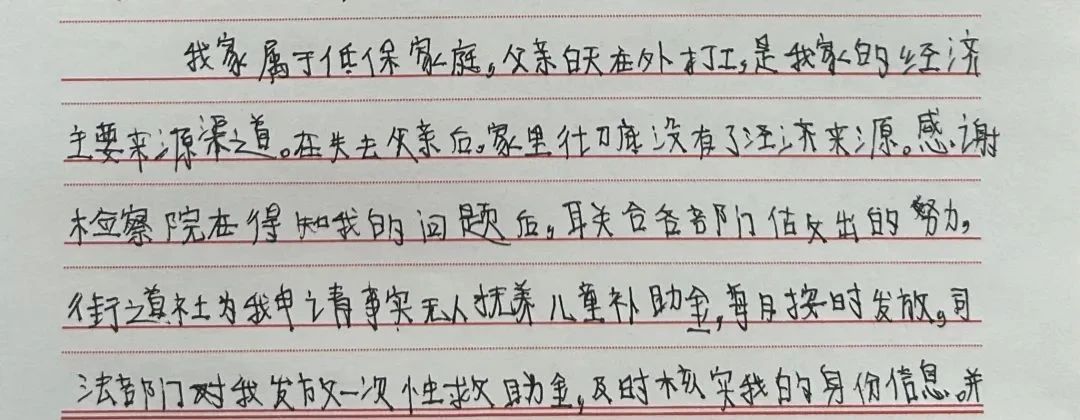 我家属于低保家庭,父亲白天在外打工,是我家的经济
主要来源渠道。在失去父亲后,家里彻底没有了经济来源。感谢
检察院在得知我的问题后,联合各部门做出的努力,
街道社为我申请事实无人抚养儿童补助金,每月按时发放。司
法部门对我发放一次性救助金,及时核实我的身份信息。并